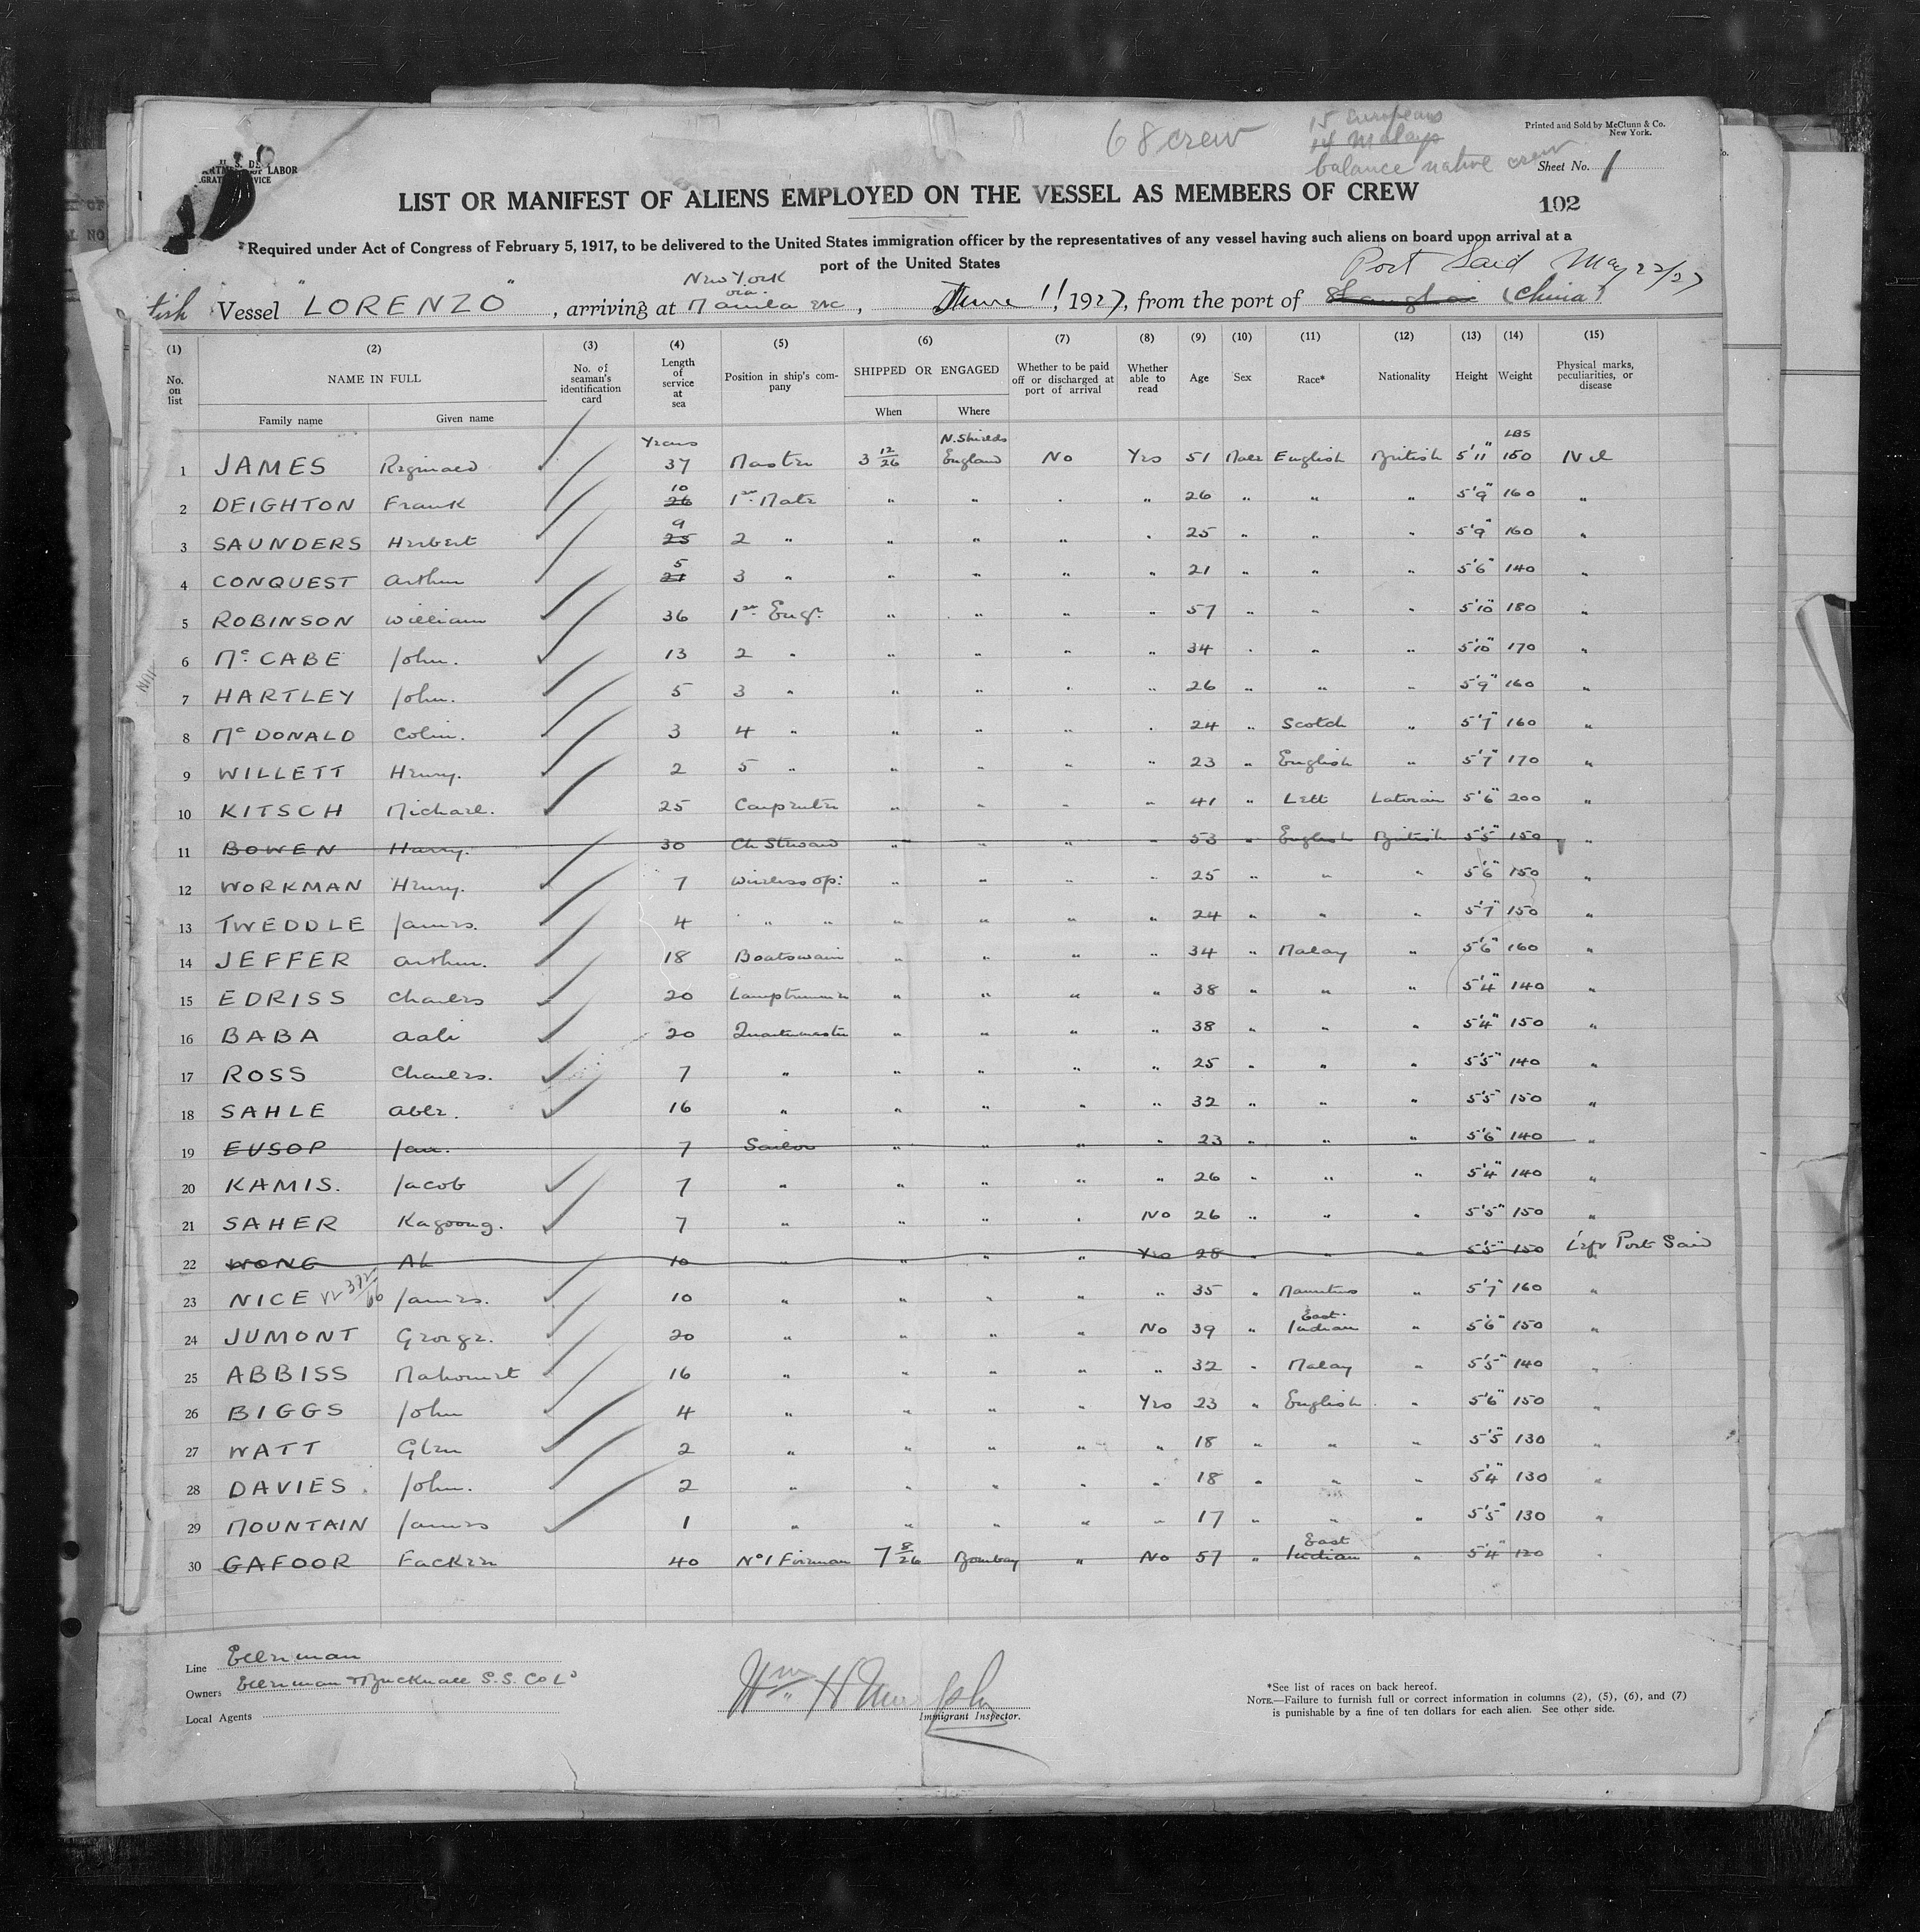 68 crew
15 Europeans
14 Malays
balance native crew
Printed and Sold by McClunn & Co.
New York.
LABOR
Sheet No. 1
LIST OR MANIFEST OF ALIENS EMPLOYED ON THE VESSEL AS MEMBERS OF CREW
102
Required under Act of Congress of February 5, 1917, to be delivered to the United States immigration officer by the representatives of any vessel having such aliens on board upon arrival at a
port of the United States
Port Said May 22/27
New York
via
tish Vessel "LORENZO", arriving at Manila etc, June 11, 1927, from the port of Shanghai (China)
(1) (2) (3) (4) (5) (6) (7) (8) (9) (10) (11) (12) (13) (14) (15)
No. on list NAME IN FULL Family name Given name No. of seaman's identification card Length of service at sea Position in ship's company SHIPPED OR ENGAGED When Where Whether to be paid off or discharged at port of arrival Whether able to read Age Sex Race* Nationality Height Weight Physical marks, peculiarities, or disease
Years N. Shields LBS
1 JAMES Reginald 37 Master 3 12/26 England No Yes 51 Male English British 5'11" 150 Nil
2 DEIGHTON Frank 10 26 1st Mate " " . " 26 " " " 5'9" 160 "
3 SAUNDERS Herbert 9 25 2 " " " " " 25 " " " 5'9" 160 "
4 CONQUEST Arthur 5 21 3 " " " " " 21 " " " 5'6" 140 "
5 ROBINSON William 36 1st Engr. " " " " 57 " " " 5'10" 180 "
6 McCABE John. 13 2 " " " " " 34 " " " 5'10" 170 "
7 HARTLEY John. 5 3 " " " " " 26 " " " 5'9" 160 "
8 McDONALD Colin. 3 4 " " " " " 24 " Scotch " 5'7" 160 "
9 WILLETT Henry. 2 5 " " " " " 23 " English " 5'7" 170 "
10 KITSCH Michael. 25 Carpenter " " " " 41 " Lett Latvian 5'6" 200 "
11 BOWEN Harry. 30 Ch Steward " " " " 53 " English British 5'5" 150 "
12 WORKMAN Henry. 7 Wireless op: " " " " 25 " " " 5'6" 150 "
13 TWEDDLE James. 4 " " " " " " 24 " " " 5'7" 150 "
14 JEFFER Arthur. 18 Boatswain " " " " 34 " Malay " 5'6" 160 "
15 EDRISS Charles 20 Lamptrimmer " " " " 38 " " " 5'4" 140 "
16 BABA Aali 20 Quartermaster " " " " 38 " " " 5'4" 150 "
17 ROSS Charles. 7 " " " " " 25 " " " 5'5" 140 "
18 SAHLE Abel. 16 " " " " " 32 " " " 5'5" 150 "
19 EUSOP Jan. 7 Sailor " " " " 23 " " " 5'6" 140 "
20 KAMIS. Jacob 7 " " " " " 26 " " " 5'4" 140 "
21 SAHER Kagoong. 7 " " " " No 26 " " " 5'5" 150 "
22 WONG Ah 10 " " " " Yes 28 " " " 5'5" 150 Left Port Said
23 NICE James. 10 " " " " " 35 " Mauritius " 5'7" 160 "
24 JUMONT George. 20 " " " " No 39 " East Indian " 5'6" 150 "
25 ABBISS Mahomet 16 " " " " " 32 " Malay " 5'5" 140 "
26 BIGGS John 4 " " " " Yes 23 " English " 5'6" 150 "
27 WATT Glen 2 " " " " " 18 " " " 5'5" 130 "
28 DAVIES. John. 2 " " " " " 18 " " " 5'4" 130 "
29 MOUNTAIN James 1 " " " " " 17 " " " 5'5" 130 "
30 GAFOOR Facken 40 No 1 Fireman 7 8/26 Bombay " No 57 " East Indian " 5'4" 120 "
Line Ellerman
Owners Ellerman & Bucknall S.S. Co Ld
Local Agents
Immigrant Inspector.
*See list of races on back hereof.
NOTE.—Failure to furnish full or correct information in columns (2), (5), (6), and (7)
is punishable by a fine of ten dollars for each alien. See other side.